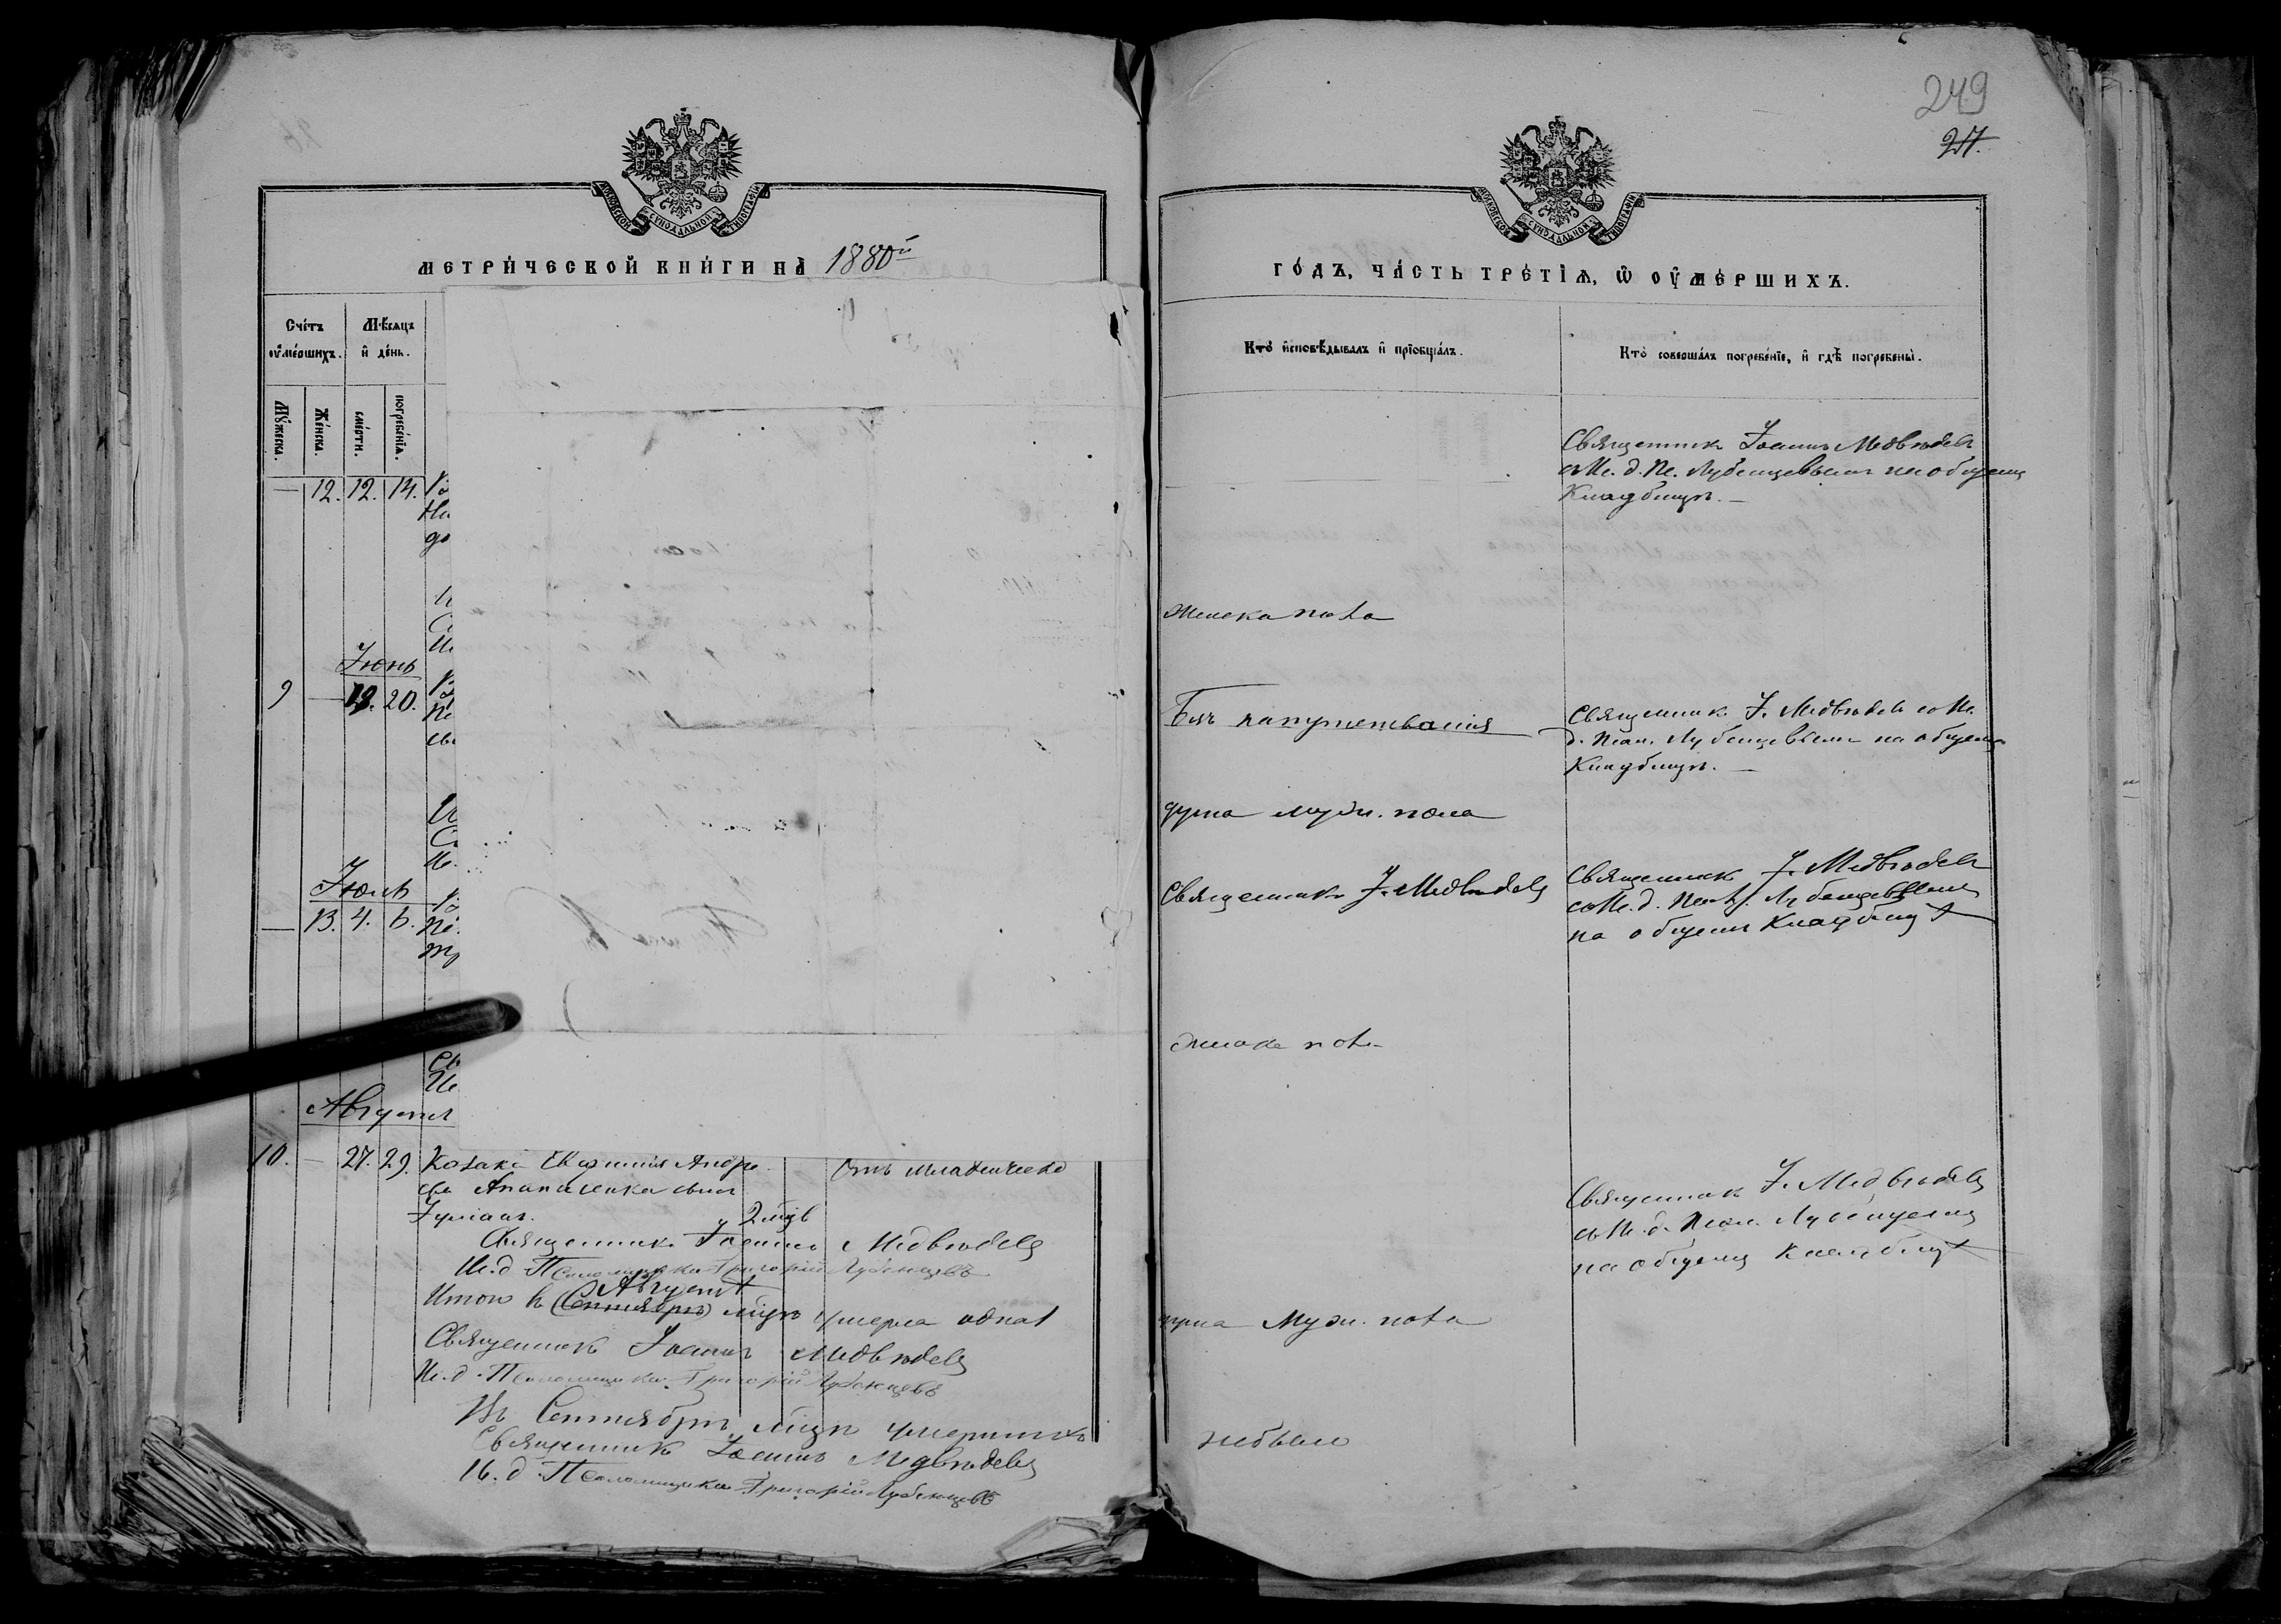 249
МОСКОВСКОЙ СУНОДАЛЬНОЙ ТИПОГРАФІИ
МЕТРИ́ЧЕСКОЙ КНИ́ГИ НА̀ 1880й
Сче́тъ оу҆ме́ршихъ.
Мѣ́сяцъ и҆ де́нь.
Мꙋ́жеска.
Же́нска.
сме́рти.
погребе́нїѧ.
— 12. 12. 14.
Іюнь
9 — 19. 20.
Іюль
— 13. 4. 6.
Августъ
10. — 27. 29. Козака Евфимія Андре
ева Апанасенка сынъ
Іуліанъ. 2 мцв Отъ младенческо
Священникъ Іоаннъ Медвѣдевъ
И. д. Псаломщика Григорій Лубенцевъ
Августѣ
Итого въ (Сентябрѣ) мцѣ умерла одна
Священникъ Іоаннъ Медвѣдевъ
И. д. Псаломщика Григорій Лубенцевъ
Въ Сентябрѣ мцѣ умершихъ
Священникъ Іоаннъ Медвѣдевъ
И. д. Псаломщика Григорій Лубенцевъ
МОСКОВСКОЙ СУНОДАЛЬНОЙ ТИПОГРАФІИ
ГО́ДЪ, ЧА́СТЬ ТРЕ́ТЇѦ, Ѡ҆ ОУ҆МЕ́РШИХЪ.
Кто̀ и҆сповѣ́дывалъ и҆ прїобща́лъ.
Кто̀ соверша́лъ погребе́нїе, и҆ гдѣ̀ погребены̀.
Священникъ Іоаннъ Медвѣдевъ
съ И. д. Пс. Лубенцевымъ на общемъ
Кладбищѣ. —
женска пола
Безъ напутствованія
Священникъ І. Медвѣдевъ съ И.
д. Псал. Лубенцевымъ на общемъ
Кладбищѣ. —
душа муж. пола
Священникъ І. Медвѣдевъ
Священникъ І. Медвѣдевъ
съ И. д. Псал. Лубенцевымъ
на общемъ Кладбищѣ
женска пола
Священникъ І. Медвѣдевъ
съ И. д. Псал. Лубенцевымъ
на общемъ Кладбищѣ
душа Муж. пола
небыло